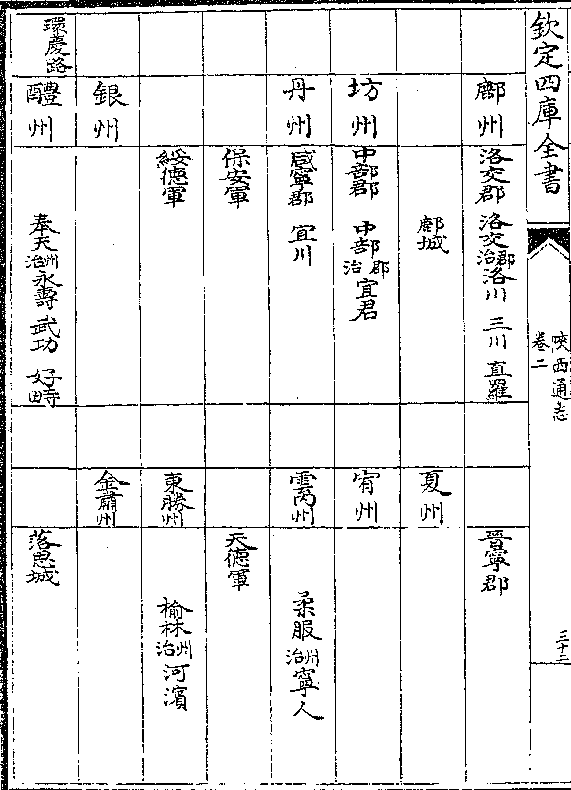 欽定四庫全書
陜西通志
卷二
三十二
鄜州 洛交郡 洛交郡治 洛川 三川 直羅 晉寧郡
鄜城 夏州
坊州 中部郡 中部郡治 宜君 宥州
丹州 咸寧郡 宜川 雲內州 柔服州治 寧人
保安軍 天德軍
綏德軍 東勝州 榆林州治 河濱
銀州 金肅州
環慶路 醴州 奉天州治 永壽 武功 好畤 落思城